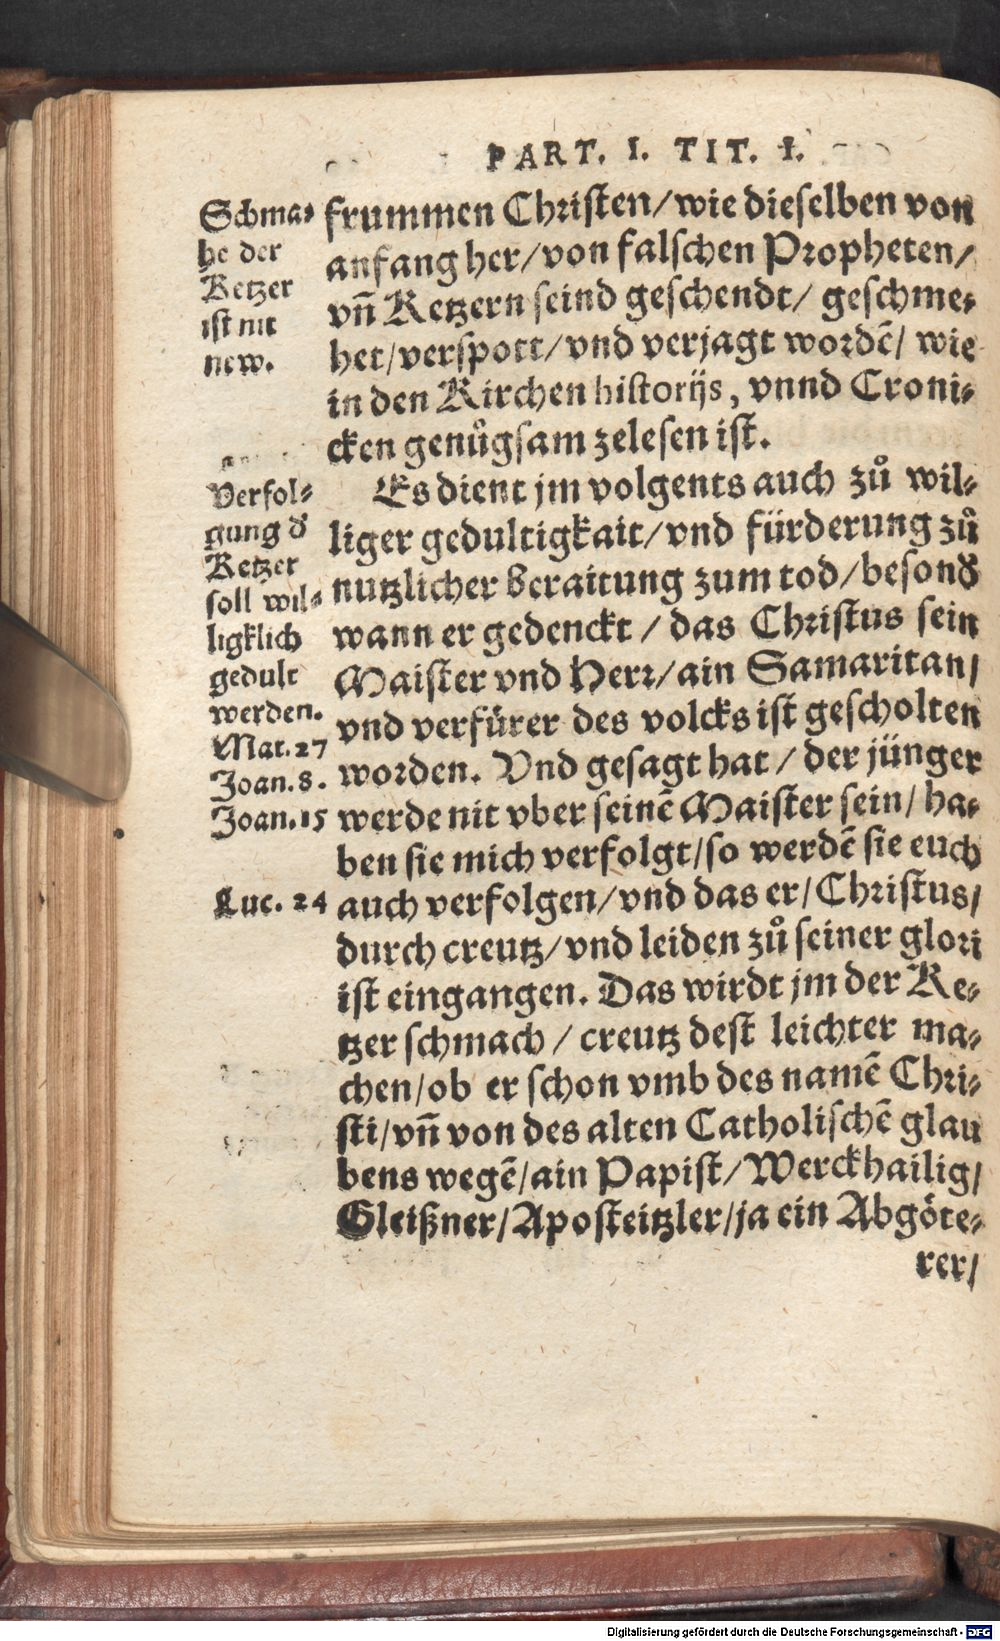 PART. I. TIT. I.
Schma⸗
he der
Ketzer
ist nit
new.
frummen Christen/wie dieselben von
anfang her/von falschen Propheten/
vñ Ketzern seind geschendt/ geschme⸗
het/verspott/vnd verjagt wordẽ/ wie
in den Kirchen historijs, vnnd Croni⸗
cken genůgsam zelesen ist.
Verfol⸗
gung d̕
Ketzer
soll wil⸗
ligklich
gedult
werden.
Mat. 27
Joan. 8.
Joan. 15
Luc. 24
Es dient jm volgents auch zů wil⸗
liger gedultigkait/vnd fürderung zů
nutzlicher beraitung zum tod/besond̕
wann er gedenckt / das Christus sein
Maister vnd Herr/ain Samaritan/
vnd verfürer des volcks ist gescholten
worden. Vnd gesagt hat / der jünger
werde nit vber seinẽ Maister sein/ ha⸗
ben sie mich verfolgt/so werdẽ sie euch
auch verfolgen/vnd das er/Christus/
durch creutz/vnd leiden zů seiner glori
ist eingangen. Das wirdt jm der Ke⸗
tzer schmach / creutz dest leichter ma⸗
chen/ob er schon vmb des namẽ Chri⸗
sti/vñ von des alten Catholischẽ glau
bens wegẽ/ain Papist/Werckhailig/
Gleißner/Aposteitzler/ja ein Abgöte⸗
rer/
Digitalisierung gefördert durch die Deutsche Forschungsgemeinschaft - DFG